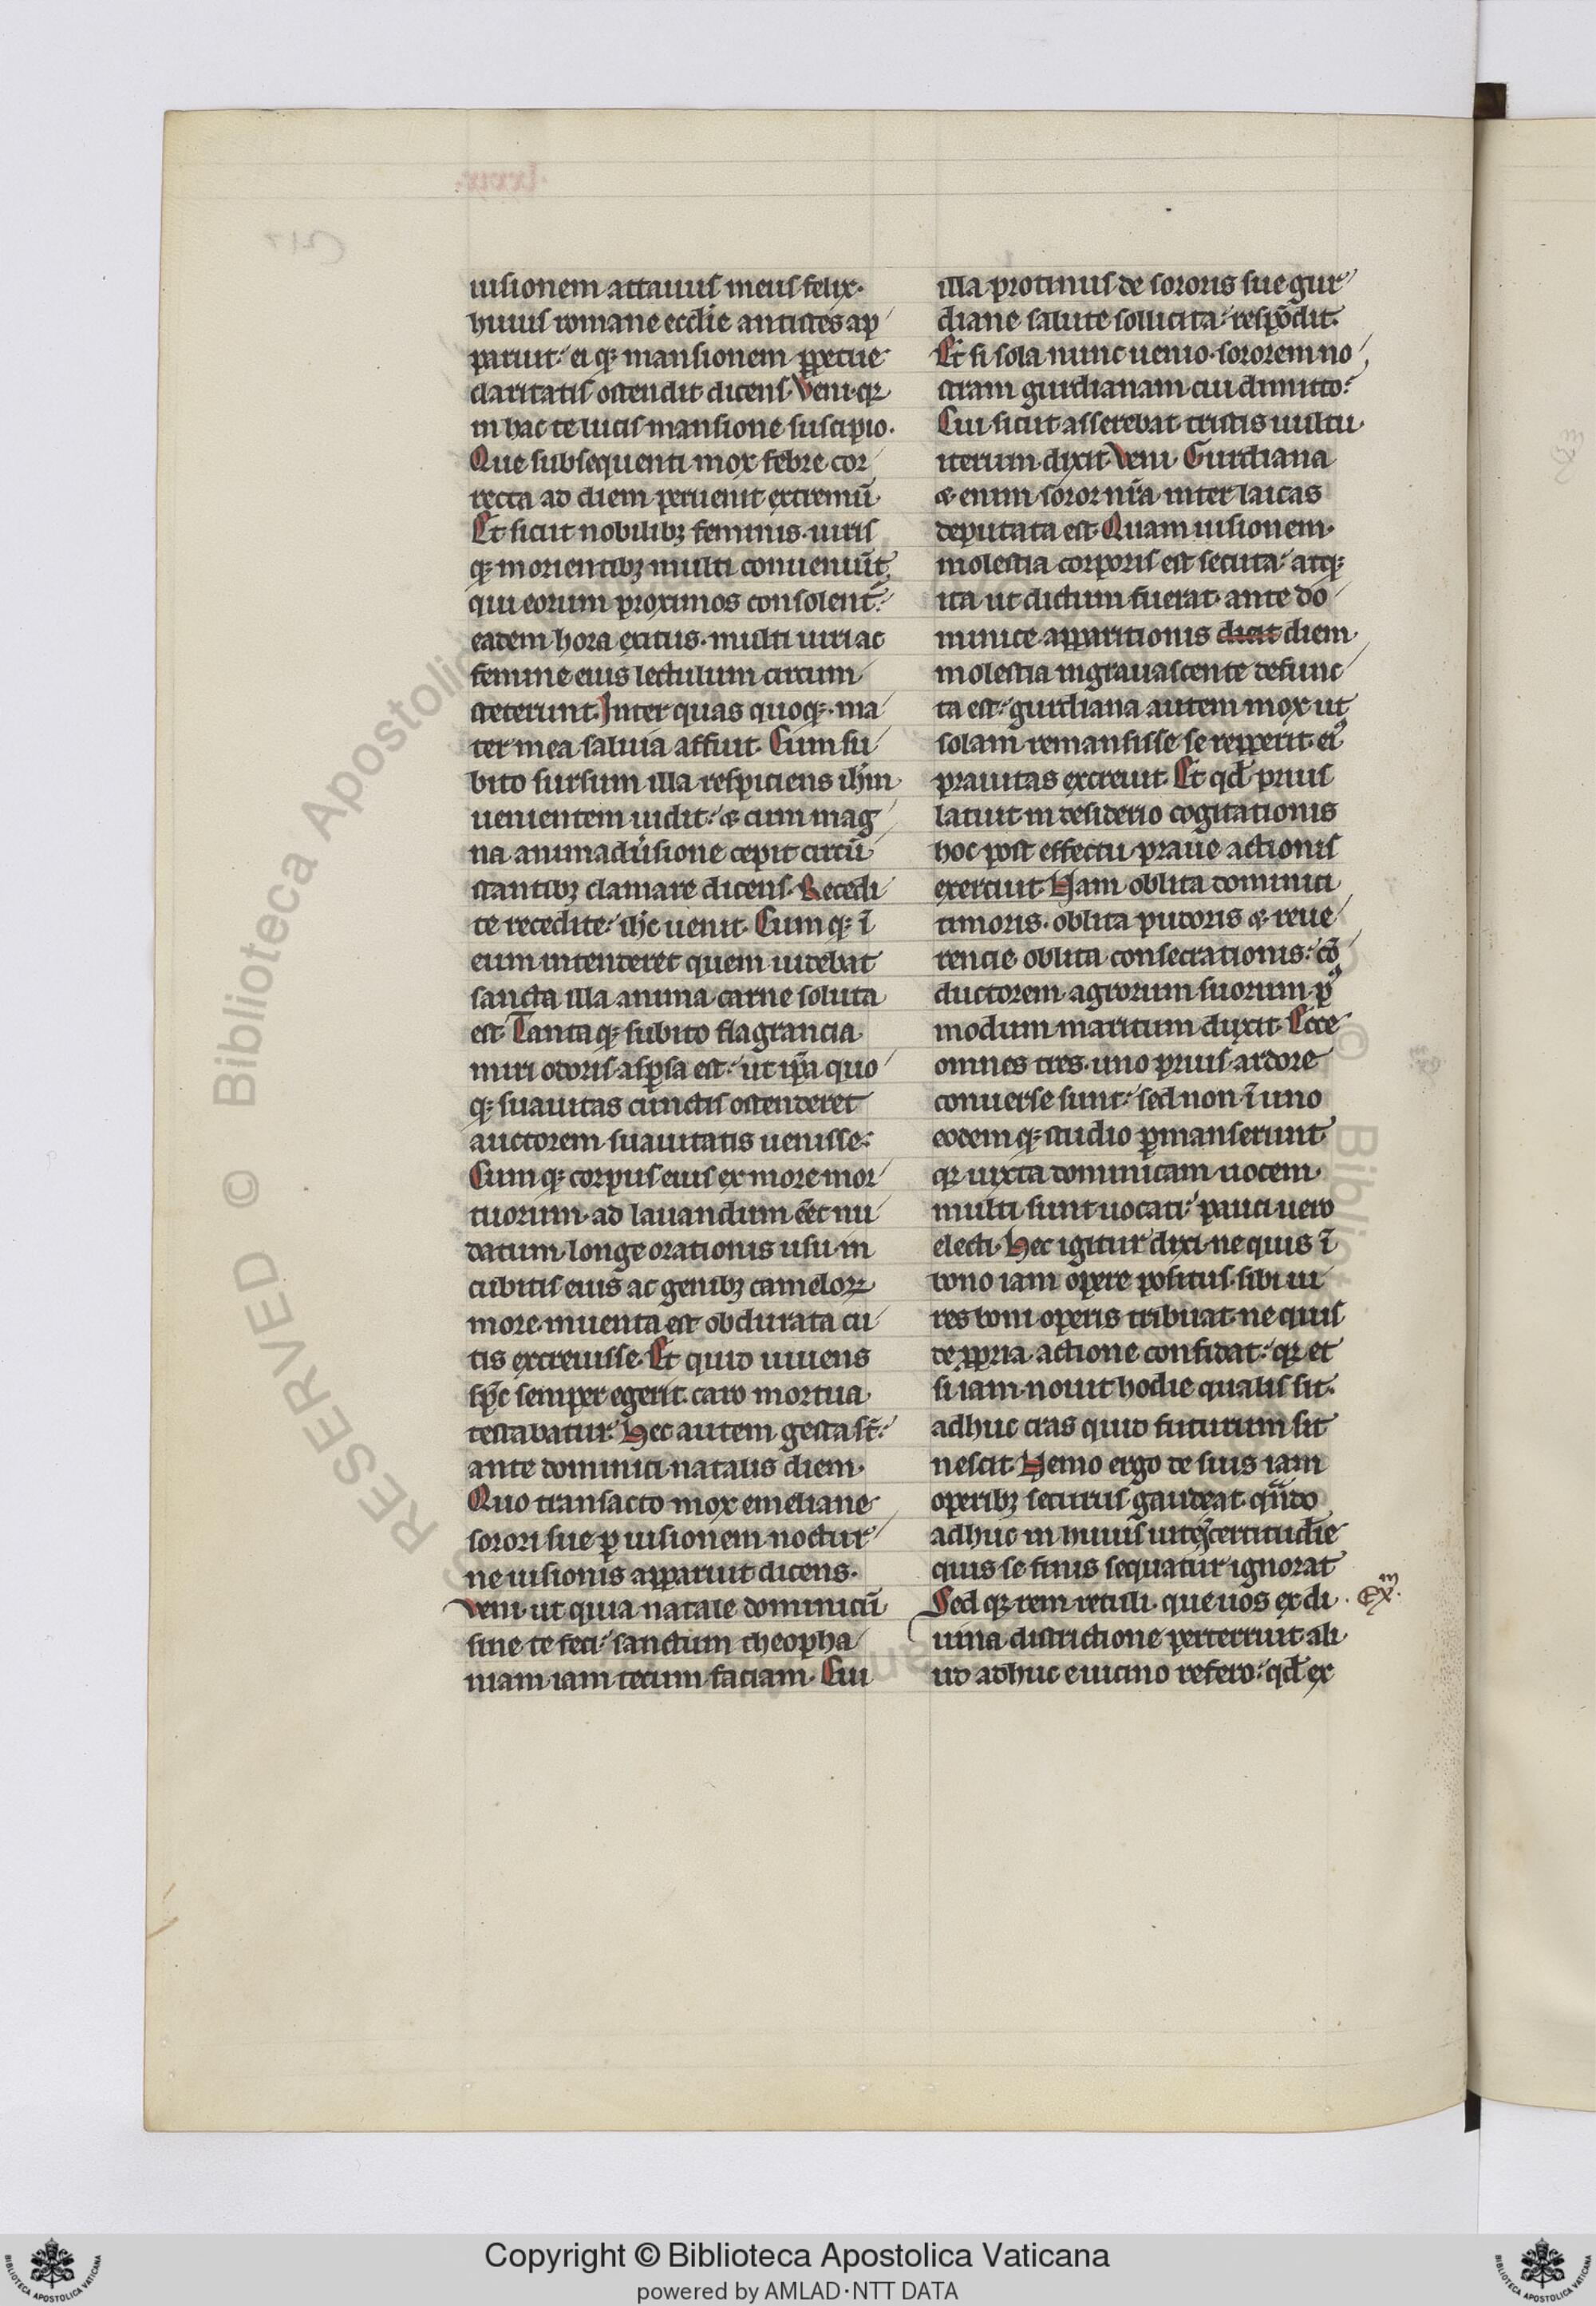 uisionem attauus meus felix·
huius romane ecclie antistes ap
paruit· ei qꝫ mansionem ꝑpetue
claritatis ostendit dicens· Veni· qꝛ
in hac te lucis mansione suscipio·
Que subsequenti mox febre cor
repta ad diem peruenit extremū·
Et sicut nobilibꝫ feminis· uiris
qꝫ morientibꝫ multi conueniūt,
qui eorum proximos consolent᷑·
eadem hora exitus· multi uiri ac
femine eius lectulum circum
steterunt· Inter quas quoqꝫ· ma
ter mea saluia affuit· Cum su
bito sursum illa respiciens ihm̄
uenientem uidit· ⁊ cum mag
na animaduˀsione cepit circū
stantibꝫ clamare dicens· Recedi
te recedite· ihc̄ uenit· Cum qꝫ ī
eum intenderet quem uidebat
sancta illa anima carne soluta
est· Tanta qꝫ subito flagrancia
miri odoris asꝑsa est· ut ip̄a quo
qꝫ suauitas cunctis ostenderet
auctorem suauitatis uenisse·
Cum qꝫ corpus eius ex more mor
tuorum· ad lauandum eēt nu
datum· longe orationis usu· in
cubitis eius ac genibꝫ cameloꝝ
more· inuenta est obdurata cu
tis excreuisse· Et quid uiuens
sp̄c semper egerit· caro mortua
testabatur· Hec autem gesta st̄·
ante dominici natalis diem·
Quo transacto mox emeliane
sorori sue ꝑ uisionem noctur
ne uisionis apparuit dicens·
Veni· ut quia natale dominicū
sine te feci· sanctum theopha
niam iam tecum faciam· Cui
illa protinus de sororis sue gur
diane salute sollicita· respōdit·
Et si sola nunc uenio· sororem no
stram gurdianam cui dimitto·
Cui sicut asserebat· tristis uultu
iterum dixit· Veni· Gurdiana
⁊ enim soror nr̄a inter laicas
deputata est· Quam uisionem·
molestia corporis est secuta· atqꝫ
ita ut dictum fuerat· ante do
minice apparitionis dicit diem
molestia ingrauascente defunc
ta est· gurdiana autem mox ut
solam remansisse se repperit· eiˀ
prauitas excreuit· Et qd̄ prius
latuit in desiderio cogitationis
hoc post effectu praue actionis
exercuit· Nam oblita dominici
timoris· oblita pudoris ⁊ reue
rencie· oblita consecrationis· cō
ductorem agrorum suorum· pˀ
modum maritum duxit· Ecce
omnes tres· uno prius ardore
conuerse sunt· sed non ī uno
eodem qꝫ studio ꝑmanserunt·
qꝛ iuxta dominicam uocem·
multi sunt uocati· pauci uero
electi· Hec igitur dixi· ne quis ī
bono iam opere positus· sibi ui
res boni operis tribuat· ne quis
de ꝓpria actione confidat· qꝛ et
si iam nouit hodie qualis sit·
adhuc cras quid futurum sit
nescit· Nemo ergo de suis iam
operibꝫ securus gaudeat· qn̄do
adhuc in huius uite ĩcertitudīe
quis se finis sequatur ignorat·
Sed qꝛ rem retuli· que uos ex di
Exm·
uina districtione perterruit· ali
ud adhuc e uicino refero· qd̄ ex